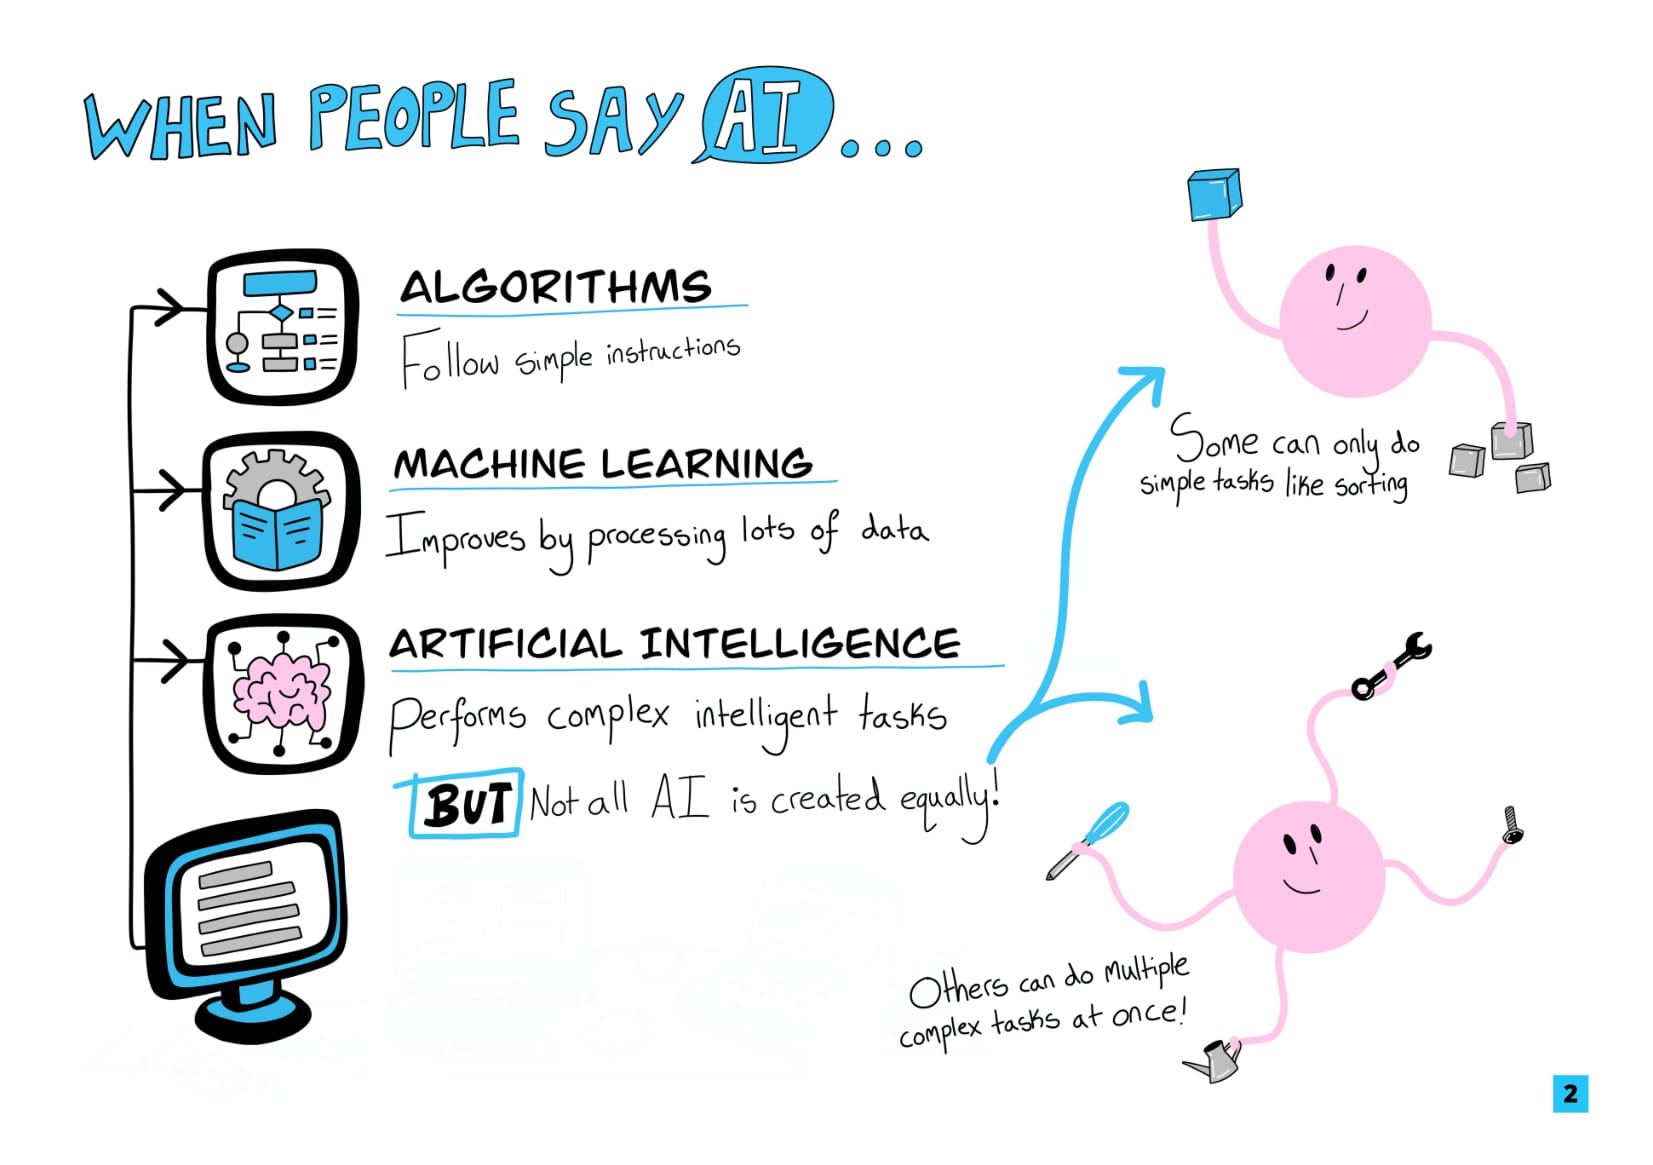 WHEN PEOPLE SAY AI...
ALGORITHMS
Follow simple instructions
MACHINE LEARNING
Improves by processing lots of data
ARTIFICIAL INTELLIGENCE
Performs complex intelligent tasks
BUT Not all AI is created equally!
Some can only do
simple tasks like sorting
Others can do multiple
complex tasks at once!
2